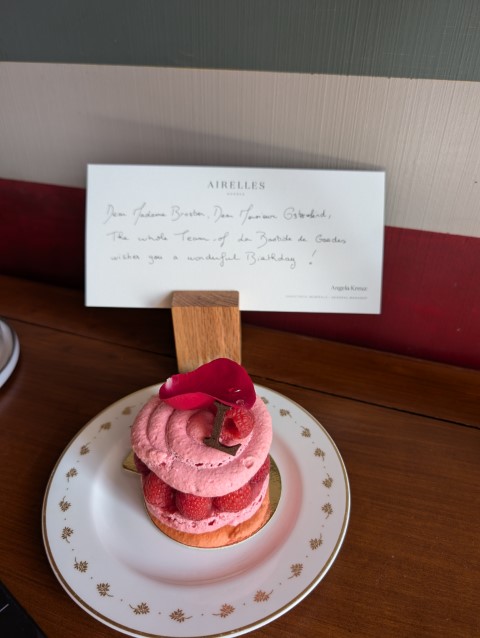 AIRELLES
GORDES
Dear Madame Broston, Dear Monsieur
The whole Team of La Bastide de Gordes
wishes you a wonderful Birthday !
Angela Kreuz